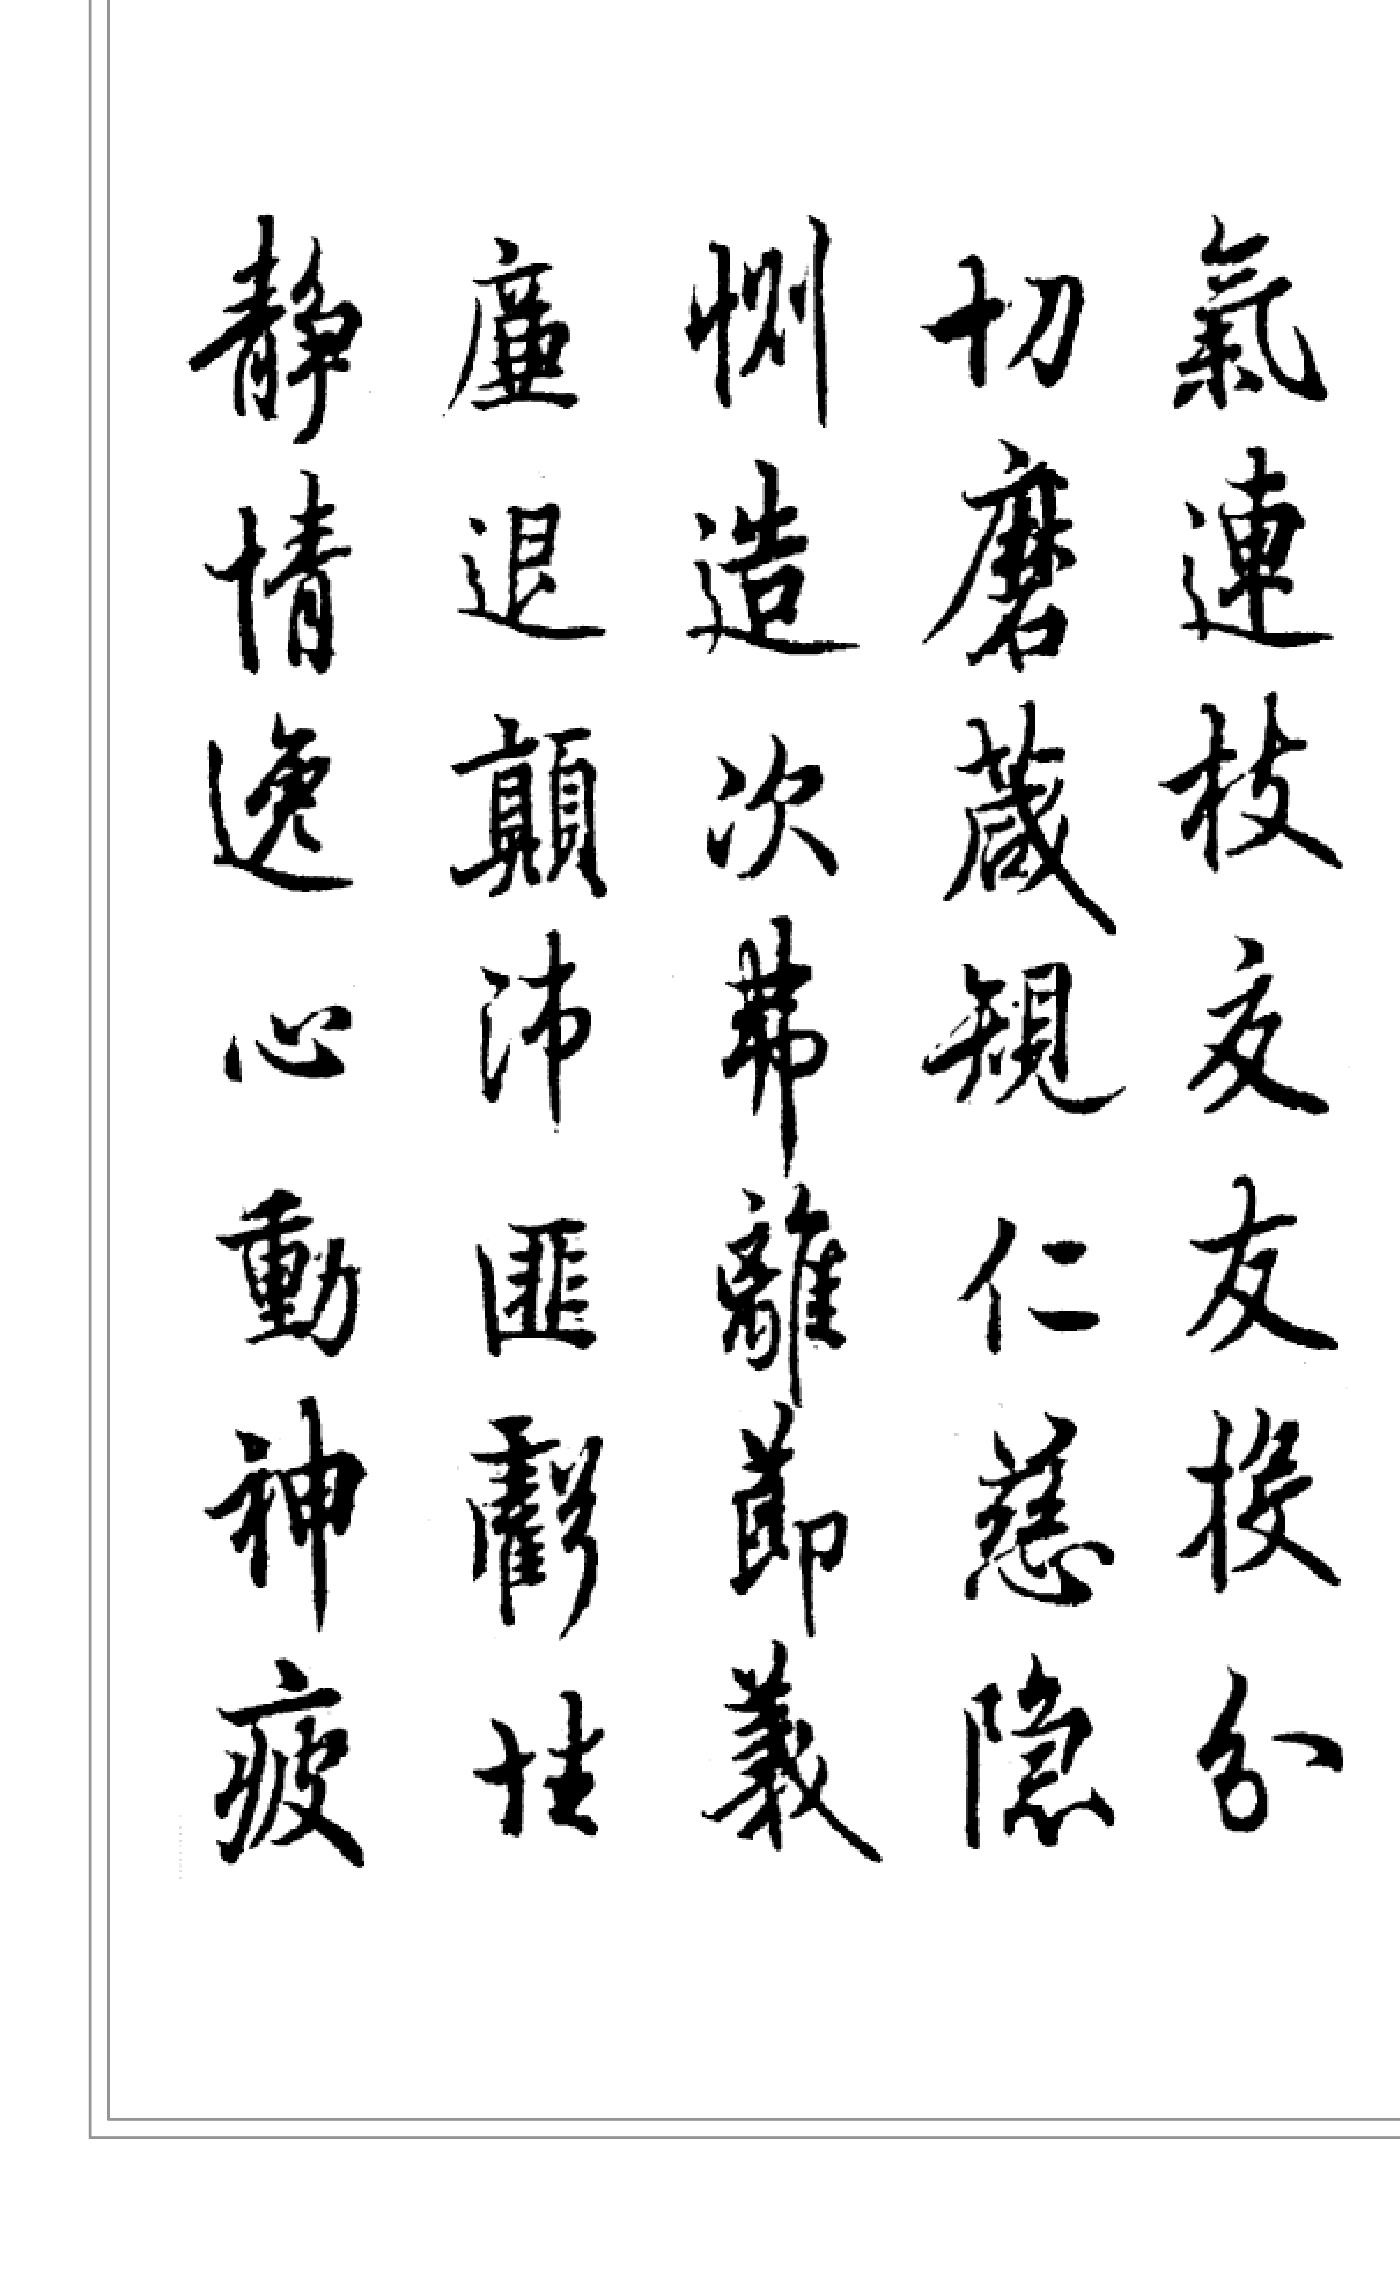 氣連枝交友投分
切磨葴規仁慈隱
惻造次弗離節義
廉退顛沛匪虧性
靜情逸心動神疲